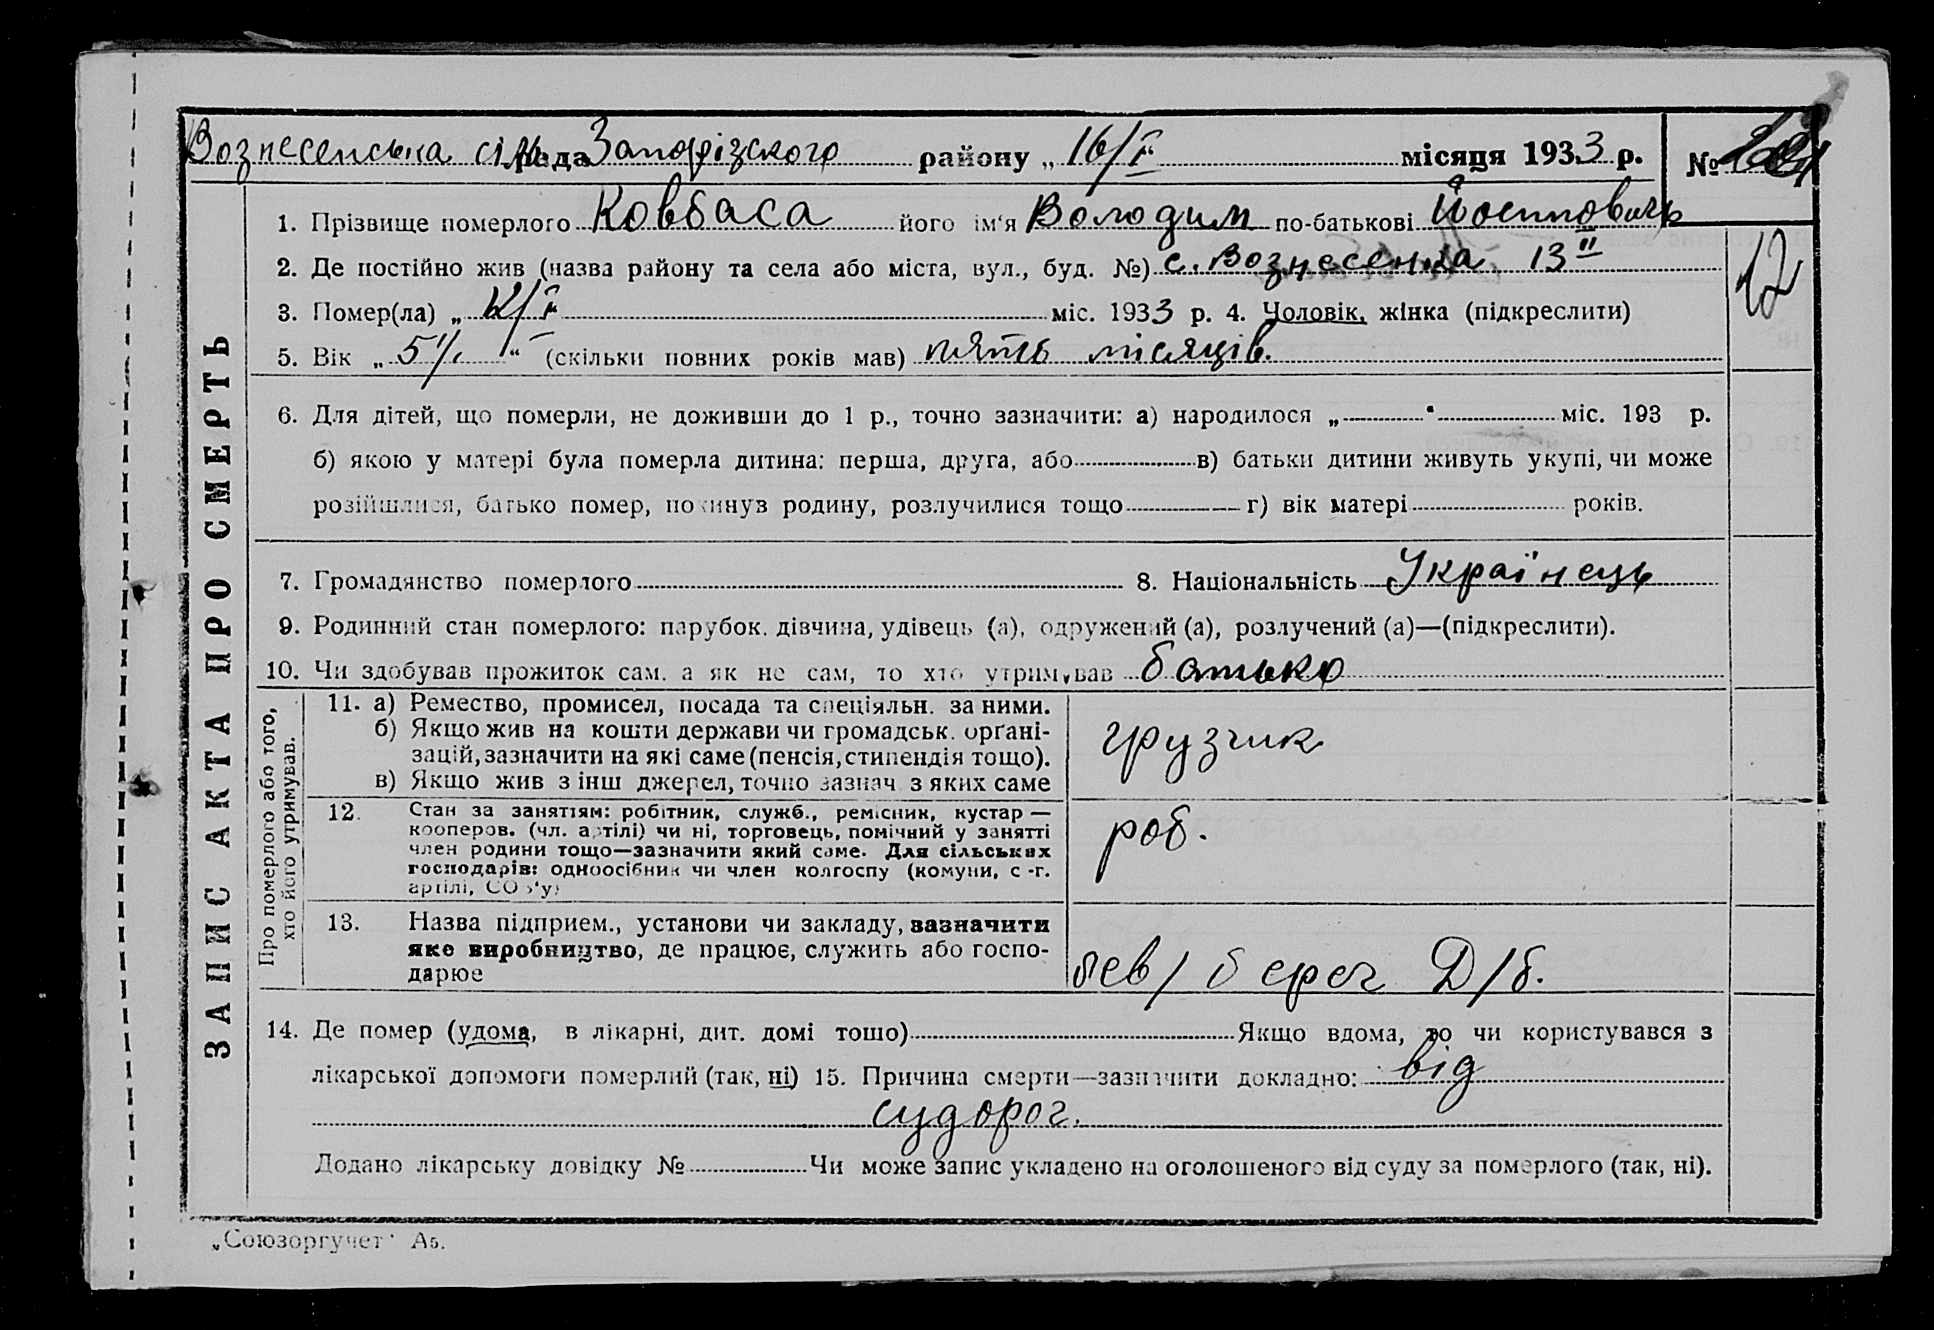 Вознесенська сіль рада Запорізського району „ 16/V місяця 1933 р. №
1. Прізвище померлого Ковбаса його ім'я Володим по-батькові Йосипович
2. Де постійно жив (назва району та села або міста, вул., буд. №) с. Вознесенка 13 II
12
3. Помер(ла) „ /V міс. 1933 р. 4. Чоловік, жінка (підкреслити)
5. Вік „ 5 “ (скільки повних років мав) пять місяців.
6. Для дітей, що померли, не доживши до 1 р., точно зазначити: а) народилося „ “ міс. 193 р.
б) якою у матері була померла дитина: перша, друга, або в) батьки дитини живуть укупі, чи може
розійшлися, батько помер, покинув родину, розлучилися тощо г) вік матері років.
7. Громадянство померлого 8. Національність Українець
9. Родинний стан померлого: парубок. дівчина, удівець (а), одружений (а), розлучений (а)—(підкреслити).
10. Чи здобував прожиток сам. а як не сам, то хто утримував батько
11. а) Ремество, промисел, посада та спеціяльн. за ними.
б) Якщо жив на кошти держави чи громадськ. орґані-
зацій, зазначити на які саме (пенсія, стипендія тощо).
в) Якщо жив з інш джерел, точно зазнач з яких саме
грузчик
12. Стан за заняттям: робітник, служб., ремісник, кустар —
кооперов. (чл. артілі) чи ні, торговець, помічний у занятті
член родини тощо—зазначити який саме. Для сільських
господарів: одноосібник чи член колгоспу (комуни, с.-г.
артілі, СОЗ'у)
роб.
13. Назва підприєм., установи чи закладу, зазначити
яке виробництво, де працює, служить або госпо-
дарює
лев/ берег Д/б.
14. Де помер (удома, в лікарні, дит. домі тошо) Якщо вдома, то чи користувався з
лікарської допомоги померлий (так, ні) 15. Причина смерти—зазначити докладно: від
судорог.
Додано лікарську довідку № Чи може запис укладено на оголошеного від суду за померлого (так, ні).
ЗАПИС АКТА ПРО СМЕРТЬ
Про померлого або того,
хто його утримував.
„Союзоргучет" А5.